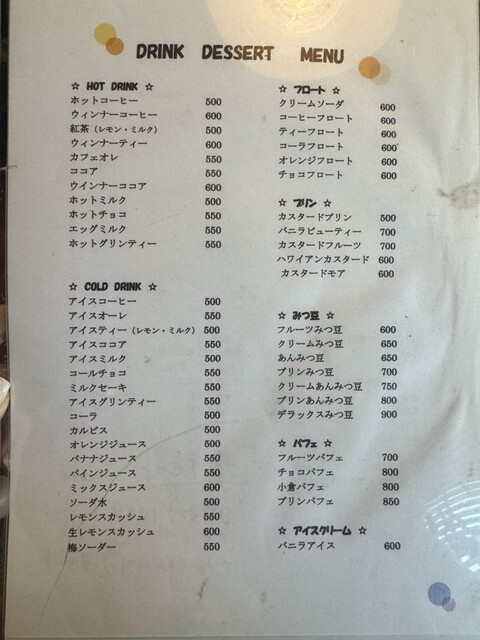 DRINK DESSERT MENU
☆ HOT DRINK ☆
ホットコーヒー 500
ウィンナーコーヒー 600
紅茶（レモン・ミルク） 500
ウィンナーティー 600
カフェオレ 550
ココア 550
ウインナーココア 600
ホットミルク 500
ホットチョコ 550
エッグミルク 550
ホットグリンティー 550
☆ COLD DRINK ☆
アイスコーヒー 500
アイスオーレ 550
アイスティー（レモン・ミルク） 500
アイスココア 550
アイスミルク 500
コールチョコ 550
ミルクセーキ 550
アイスグリンティー 550
コーラ 500
カルピス 500
オレンジジュース 500
バナナジュース 550
パインジュース 550
ミックスジュース 600
ソーダ水 500
レモンスカッシュ 550
生レモンスカッシュ 600
梅ソーダー 550
☆ フロート ☆
クリームソーダ 600
コーヒーフロート 600
ティーフロート 600
コーラフロート 600
オレンジフロート 600
チョコフロート 600
☆ プリン ☆
カスタードプリン 500
バニラビューティー 700
カスタードフルーツ 700
ハワイアンカスタード 600
カスタードモア 600
☆ みつ豆 ☆
フルーツみつ豆 600
クリームみつ豆 650
あんみつ豆 650
プリンみつ豆 700
クリームあんみつ豆 750
プリンあんみつ豆 800
デラックスみつ豆 900
☆ パフェ ☆
フルーツパフェ 700
チョコパフェ 800
小倉パフェ 800
プリンパフェ 850
☆ アイスクリーム ☆
バニラアイス 600